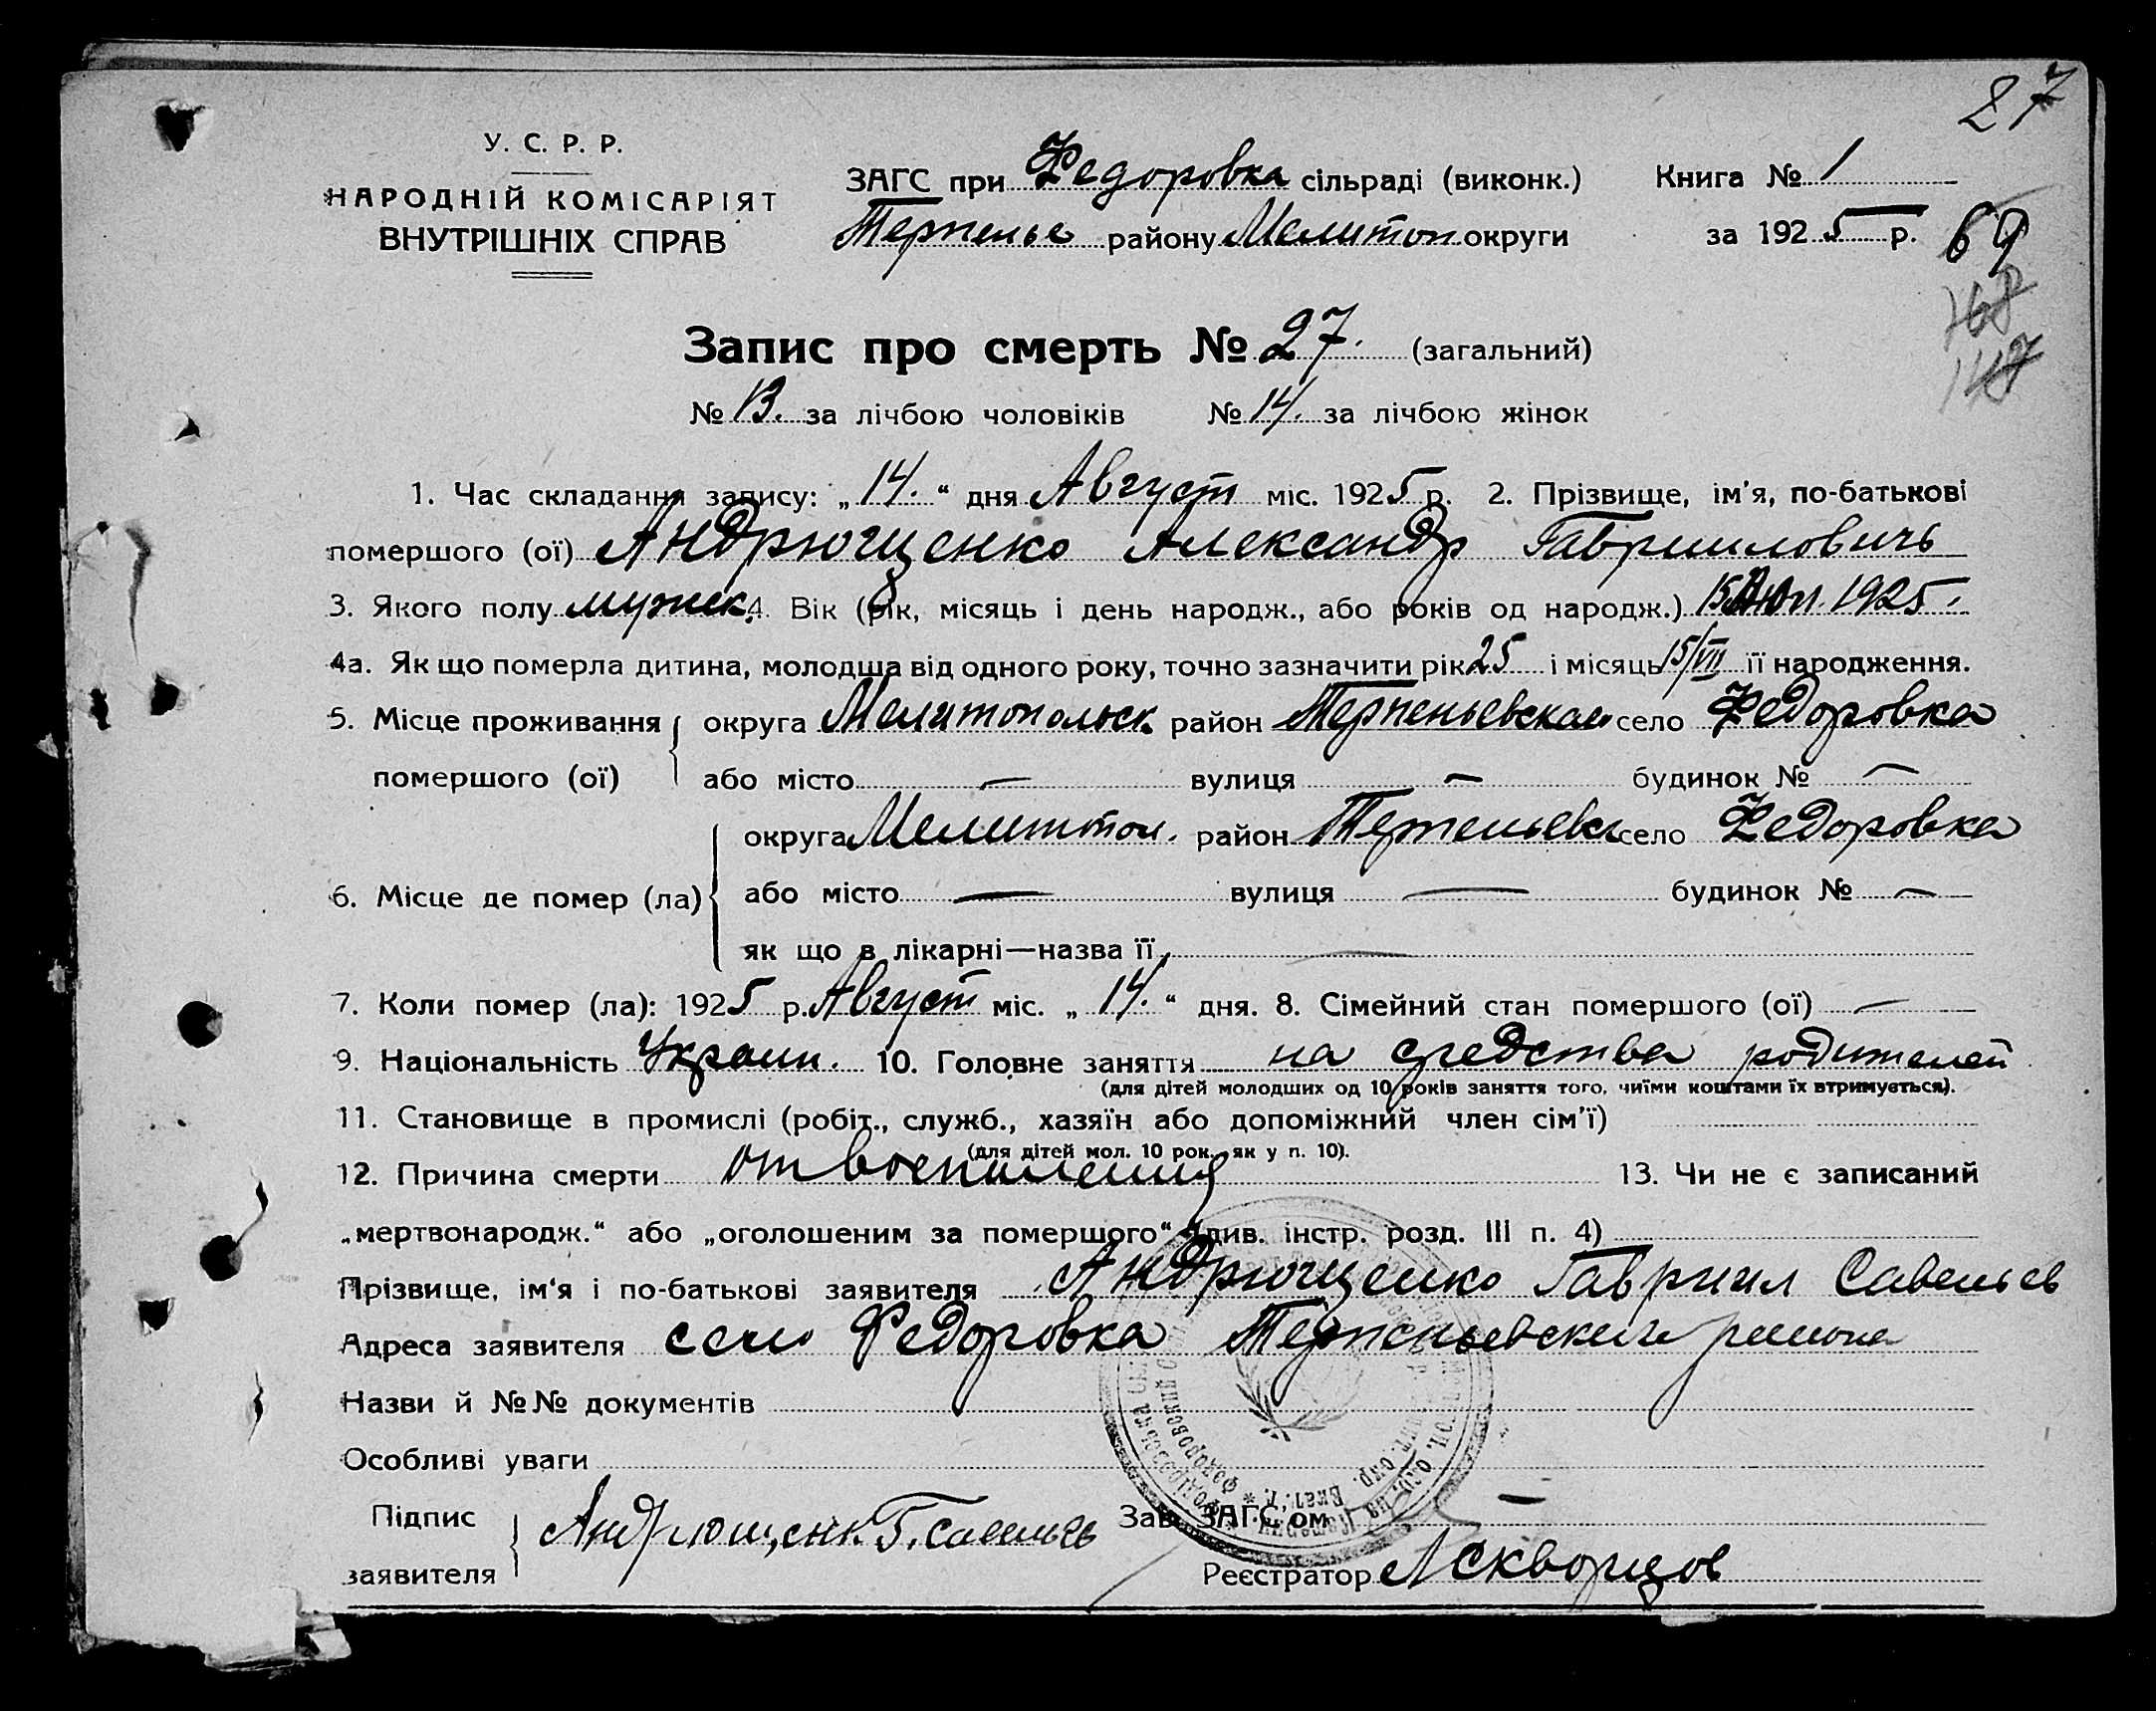 27
У. С. Р. Р.
НАРОДНІЙ КОМІСАРІЯТ
ВНУТРІШНІХ СПРАВ
ЗАГС при Федоровка сільраді (виконк.) Книга № 1
Терпенье району Мелитоп округи за 1925 р.
69
168
147
Запис про смерть № 27. (загальний)
№ 13. за лічбою чоловіків № 14. за лічбою жінок
1. Час складання запису: „14.“ дня Август міс. 1925 р. 2. Прізвище, ім'я, по-батькові
помершого (ої) Андрющенко Александр Гавриилович
3. Якого полу мужск. 4. Вік (рік, місяць і день народж., або років од народж.) 15 Июл 1925.
4а. Як що померла дитина, молодша від одного року, точно зазначити рік 25 і місяць 15/VII її народження.
5. Місце проживання округа Мелитопольск район Терпеньевская село Федоровка
помершого (ої) або місто — вулиця — будинок № —
округа Мелитоп. район Терпеньевск село Федоровка
6. Місце де помер (ла) або місто — вулиця — будинок № —
як що в лікарні—назва її —
7. Коли помер (ла): 1925 р. Август міс. „14.“ дня. 8. Сімейний стан помершого (ої) —
9. Національність Украин. 10. Головне заняття на средства родителей
(для дітей молодших од 10 років заняття того, чиїми коштами їх втримується).
11. Становище в промислі (робіт., служб., хазяїн або допоміжний член сім'ї)
(для дітей мол. 10 рок. як у п. 10).
12. Причина смерти от воспиления 13. Чи не є записаний
„мертвонародж.“ або „оголошеним за помершого“ (див. інстр. розд. III п. 4)
Прізвище, ім'я і по-батькові заявителя Андрющенко Гавриил Савельев
Адреса заявителя село Федоровка Терпеньевского района
Назви й №№ документів
Особливі уваги
Підпис
заявителя
Андрющенк. Г. Савельев
Зав. ЗАГС'ом
Реєстратор А Скворцов